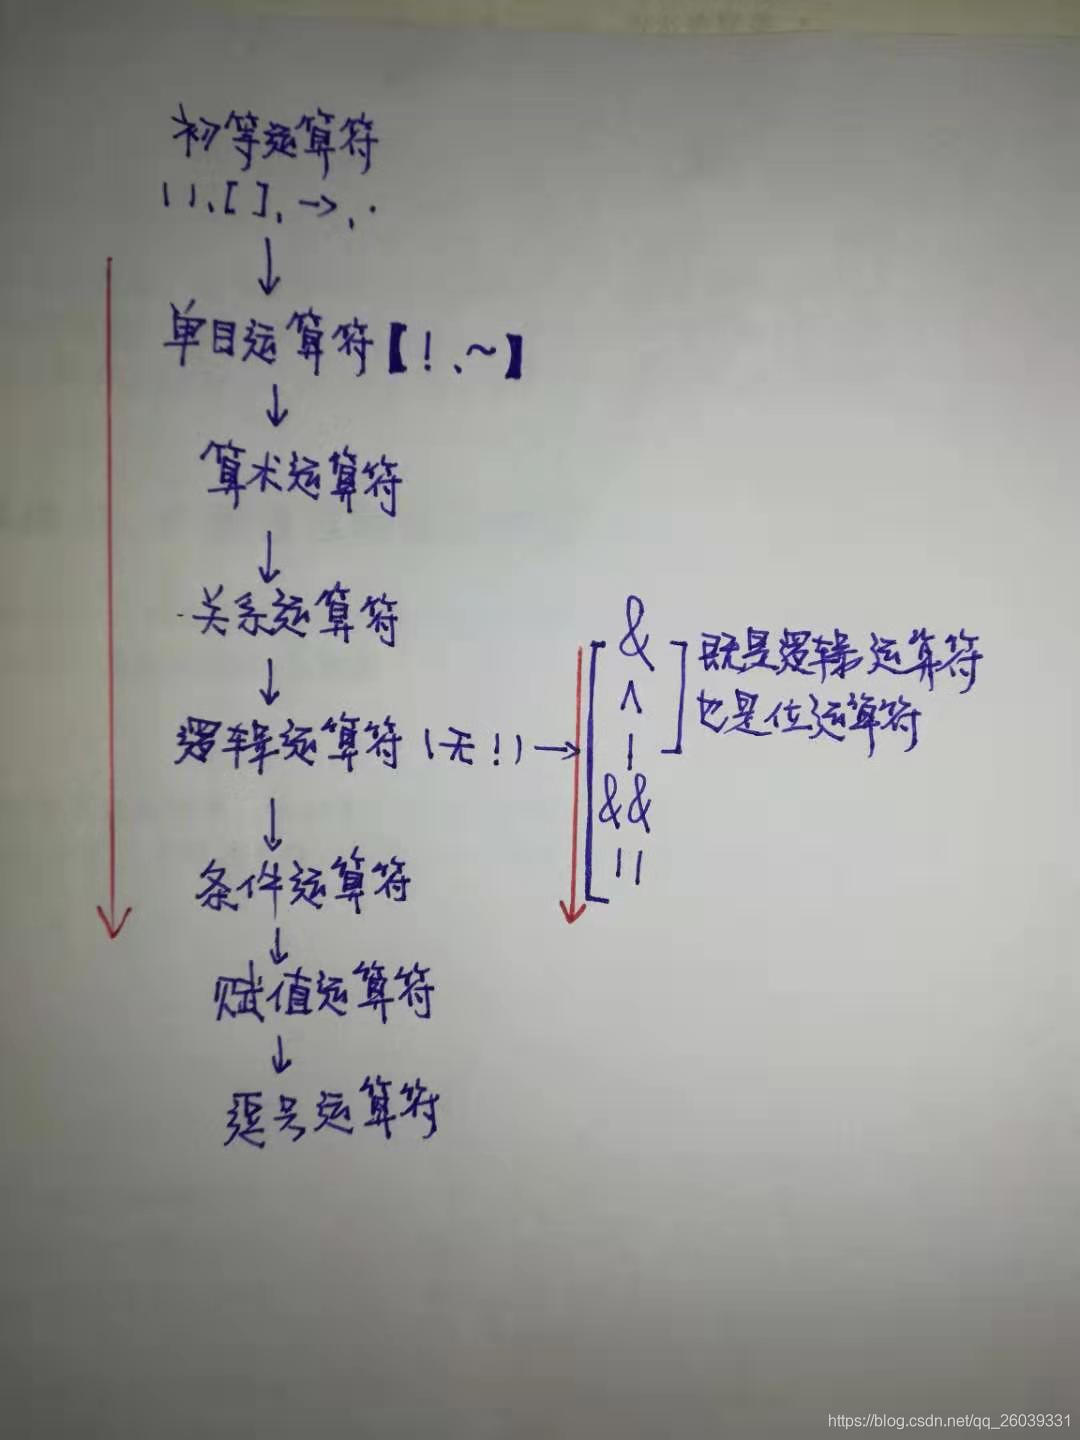 初等运算符
()、[]、→、.
↓
单目运算符【!、~】
↓
算术运算符
↓
关系运算符
↓
逻辑运算符(无!)→
&
^
|
&&
||
既是逻辑运算符
也是位运算符
↓
条件运算符
↓
赋值运算符
↓
逗号运算符
https://blog.csdn.net/qq_26039331